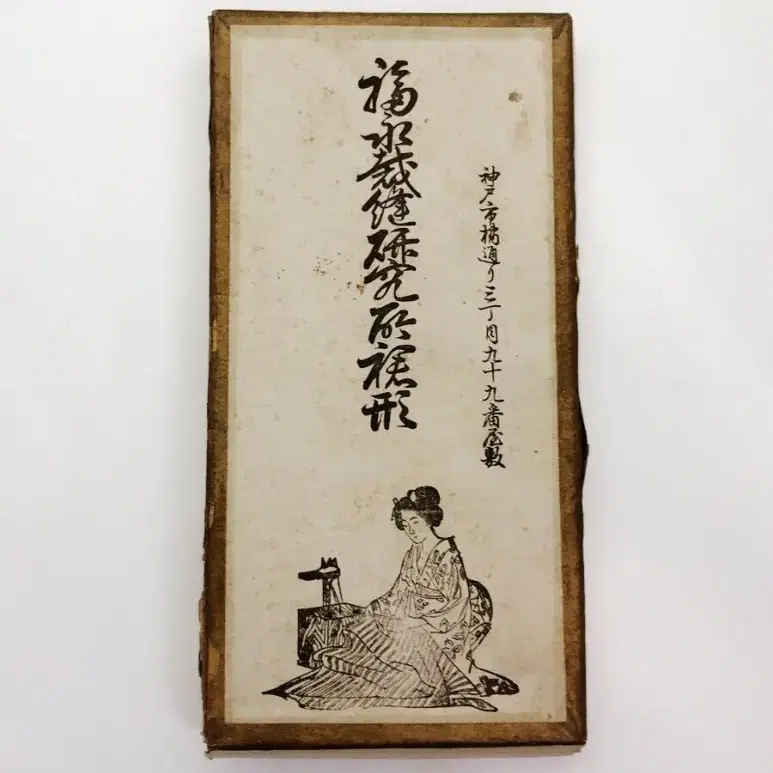 神戸市橘通り三丁目九十九番屋敷
福永裁縫研究所裾形